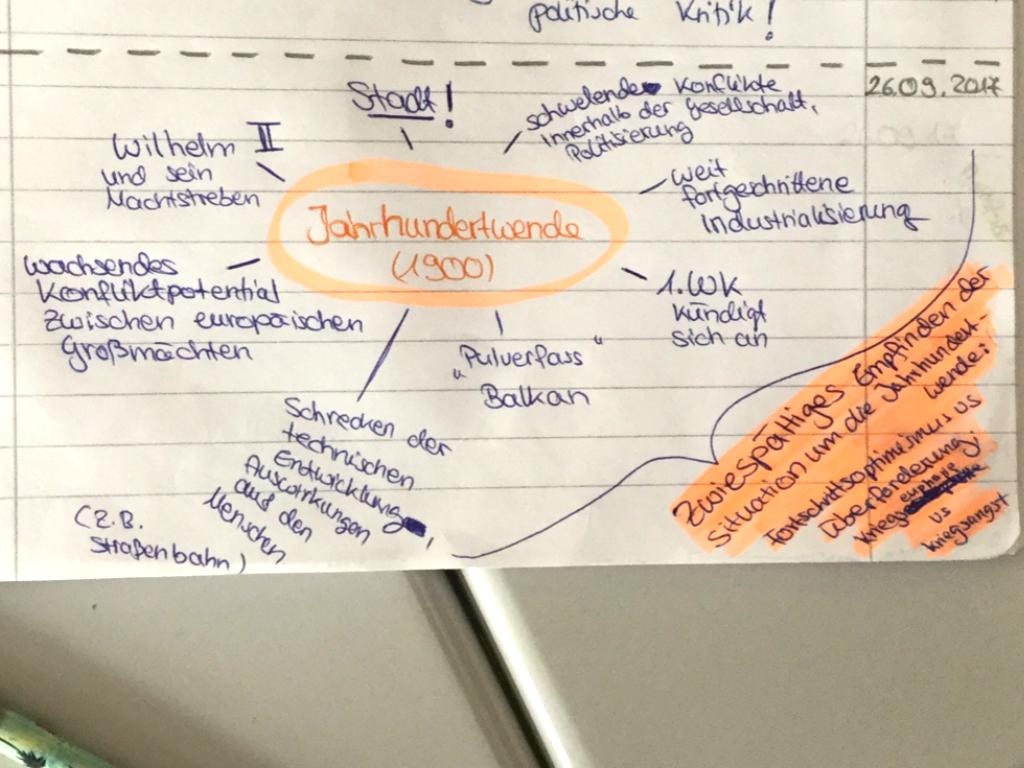 politische Kritik!
26.09.2017
Stadt!
schwelende Konflikte
innerhalb der Gesellschaft,
Politisierung
Wilhelm II
und sein
Machtstreben
weit
fortgeschrittene
Industrialisierung
Jahrhundertwende
(1900)
wachsendes
Konfliktpotential
zwischen europäischen
Großmächten
1.WK
kündigt
sich an
"Pulverfass"
Balkan
Schrecken der
technischen
Entwicklung,
Auswirkungen
auf den
Menschen
(z.B.
Straßenbahn)
Zwiespältiges Empfinden der
Situation um die Jahrhundert-
wende:
Fortschrittsoptimismus vs
Überforderung
Kriegseuphorie
vs
Kriegsangst